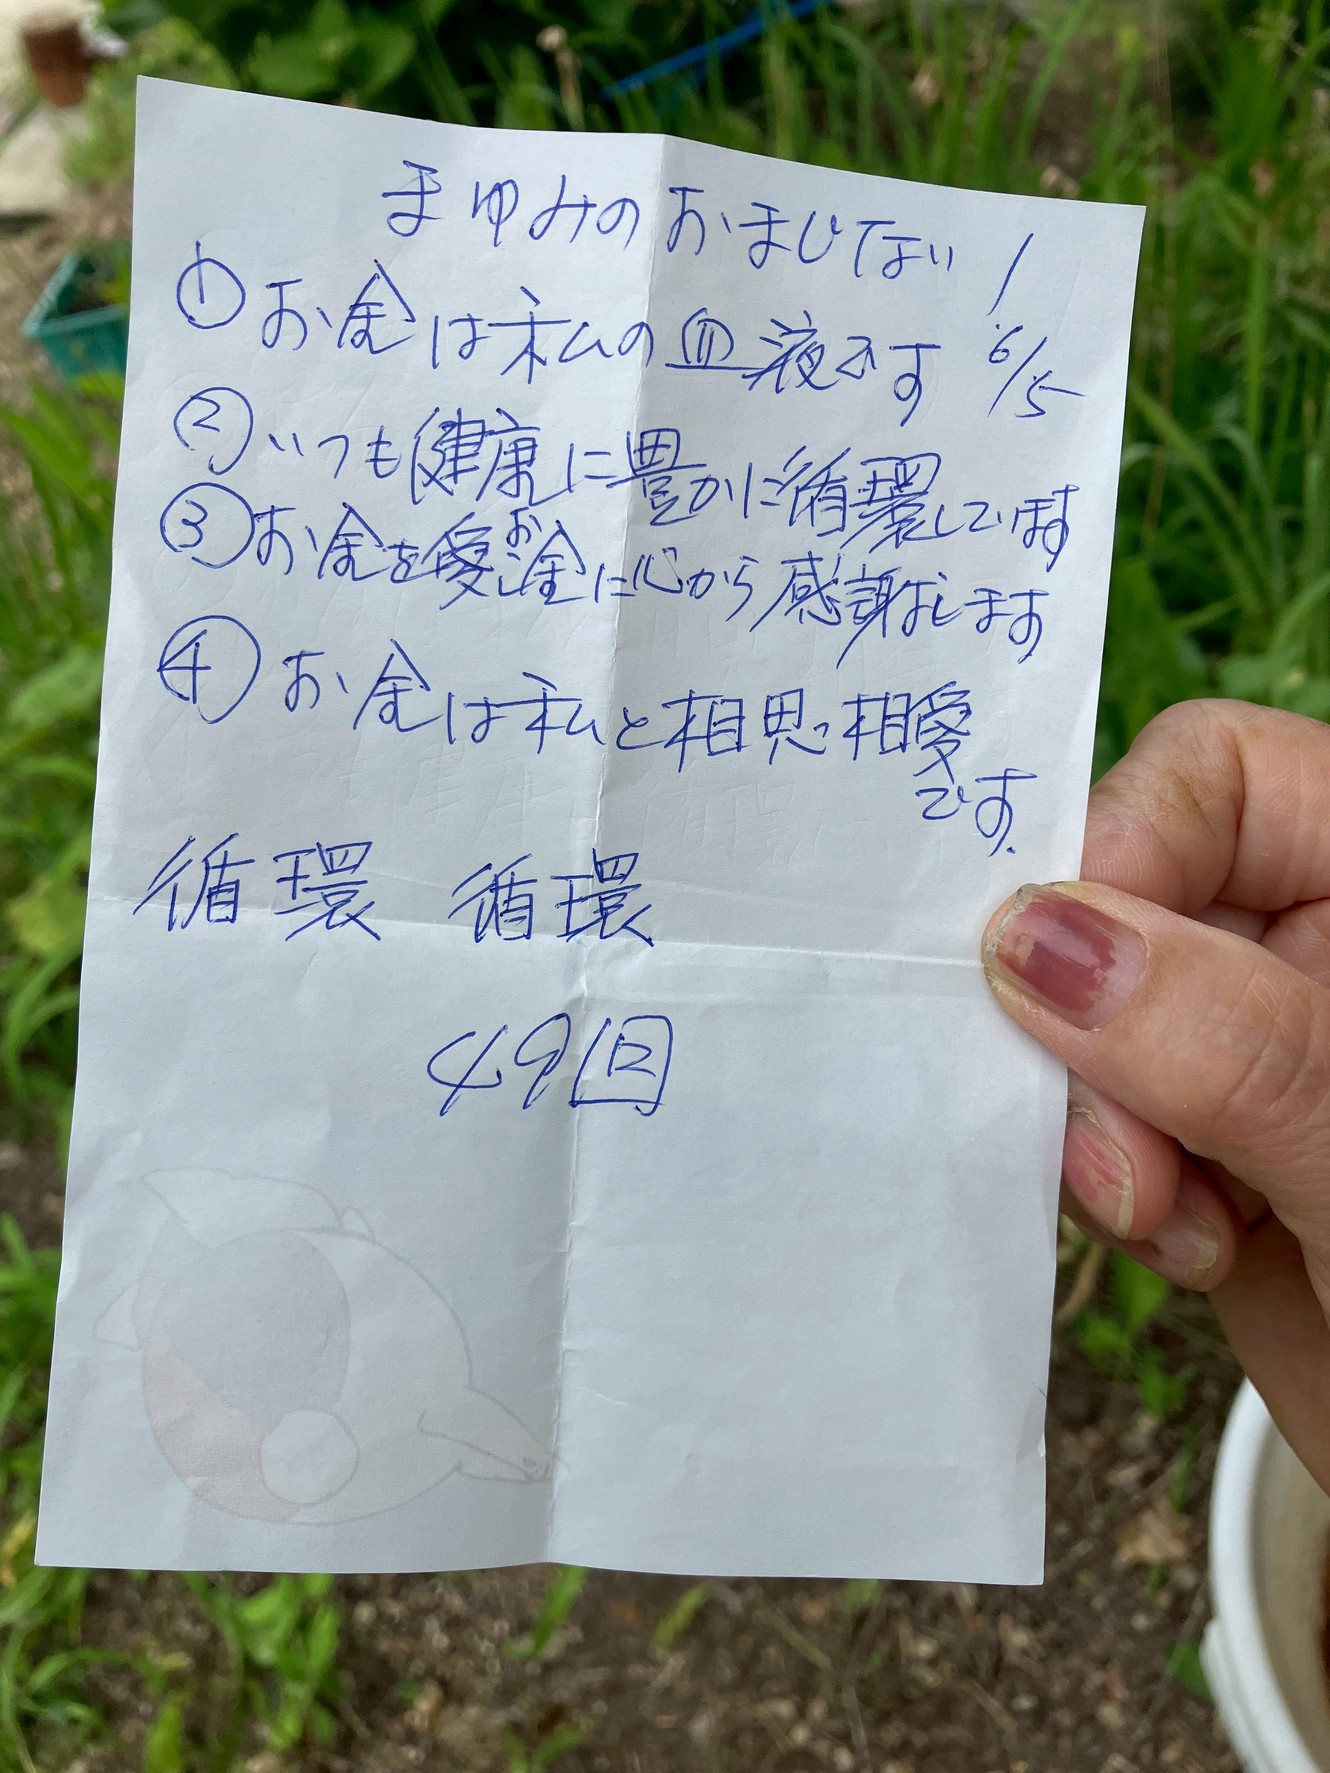 まゆみのおまじない!
①お金は私の血液です 6/5
②いつも健康に豊かに循環しています
③お金を愛しお金に心から感謝します
④お金は私と相思相愛
です.
循環 循環
49回